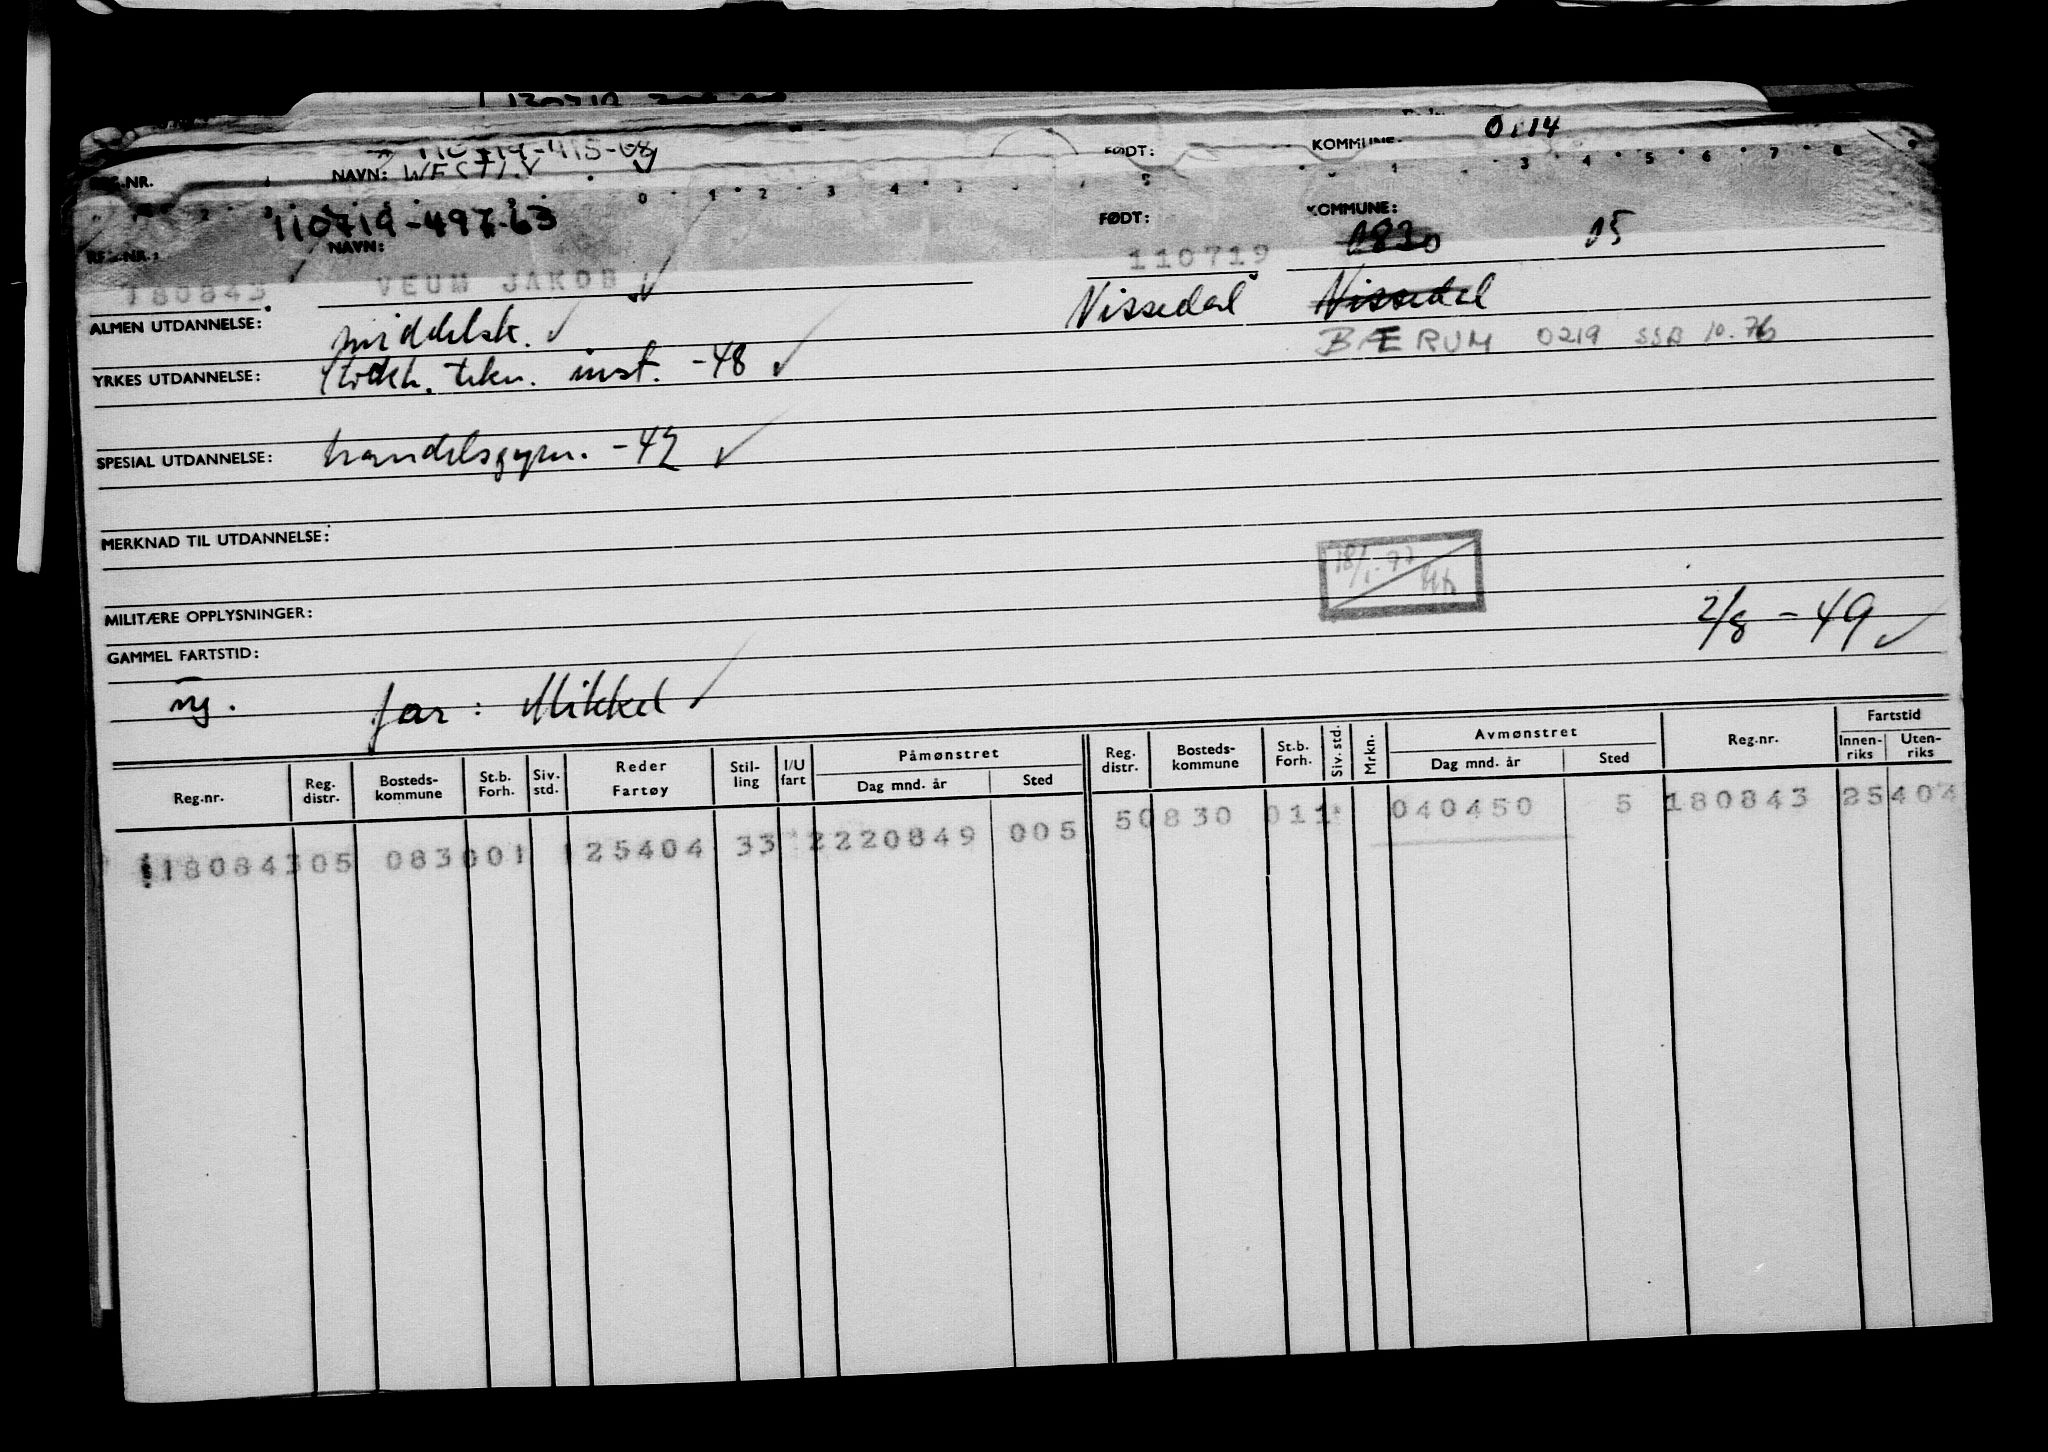 0114
110719-415-08
REG.NR. NAVN: FØDT: KOMMUNE:
110719-497-63
REG.NR.: NAVN: FØDT: KOMMUNE: 15
180843 VEUM JAKOB 110719
Vissedal Vissedal
ALMEN UTDANNELSE: middelsk. BÆRUM 0219 SSB 10.76
YRKES UTDANNELSE: Stockh. tekn. inst. -48
SPESIAL UTDANNELSE: handelsgymn. -42
MERKNAD TIL UTDANNELSE:
MILITÆRE OPPLYSNINGER:
2/8 - 49
GAMMEL FARTSTID:
ny. far: Mikkel
Reg.nr. Reg. distr. Bosteds-kommune St.b. Forh. Siv. std. Reder Fartøy Stil-ling I/U fart Påmønstret Dag mnd. år Sted Reg. distr. Bosteds-kommune St.b. Forh. Siv. std. Mrkn. Avmønstret Dag mnd. år Sted Reg.nr. Fartstid Innen-riks Uten-riks
18084305 083001 25404 33 2220849 005 50830 011 040450 5 180843 25404